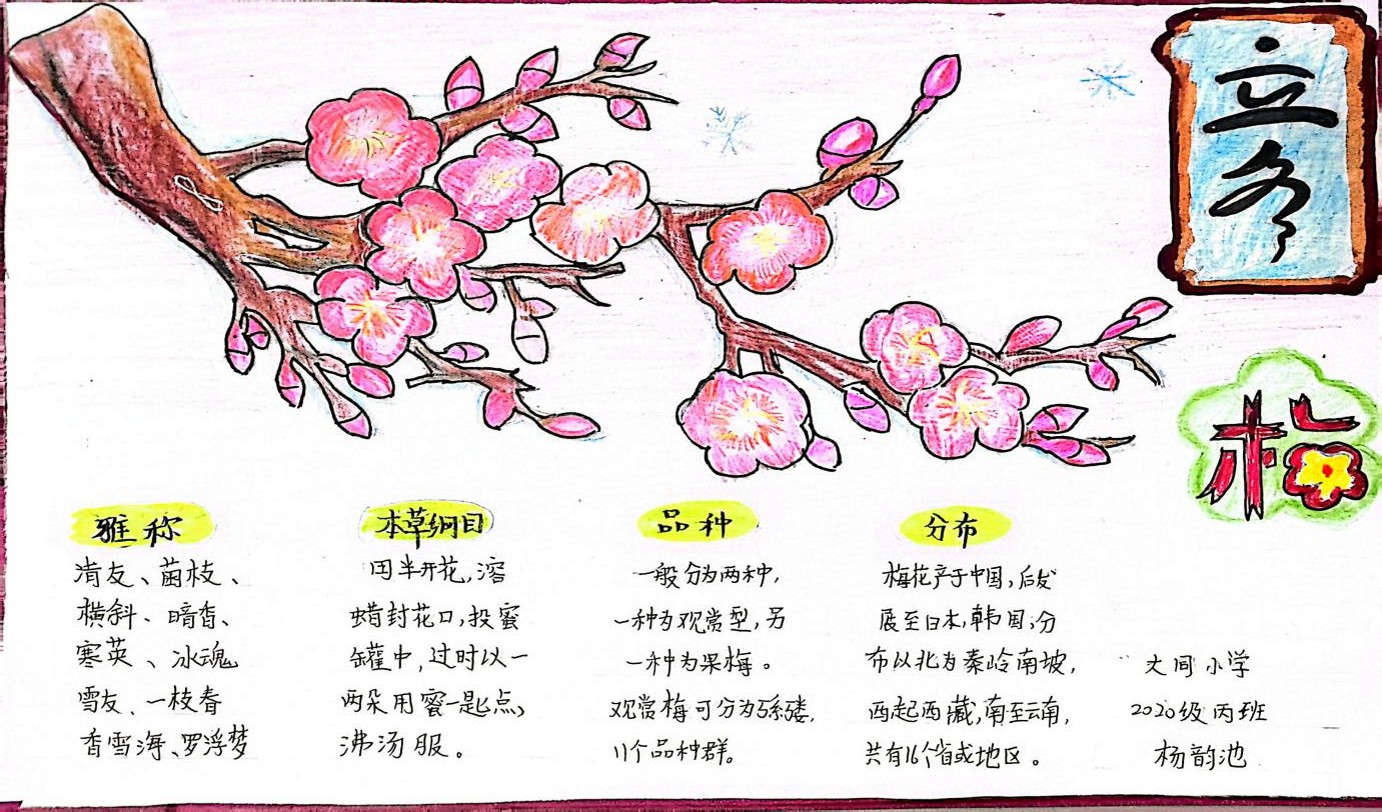 立冬
梅
雅称
清友、菌枝、
横斜、暗香、
寒英、冰魂
雪友、一枝春
香雪海、罗浮梦
本草纲目
用半开花,溶
蜡封花口,投蜜
罐中,过时以一
两朵用蜜一匙点,
沸汤服。
品种
一般分为两种,
一种为观赏型,另
一种为果梅。
观赏梅可分为5系
11个品种群。
分布
梅花产于中国,后发
展至日本,韩国;分
布以北为秦岭南坡,
西起西藏,南至云南,
共有16个省或地区。
小学
2020级丙班
杨韵池